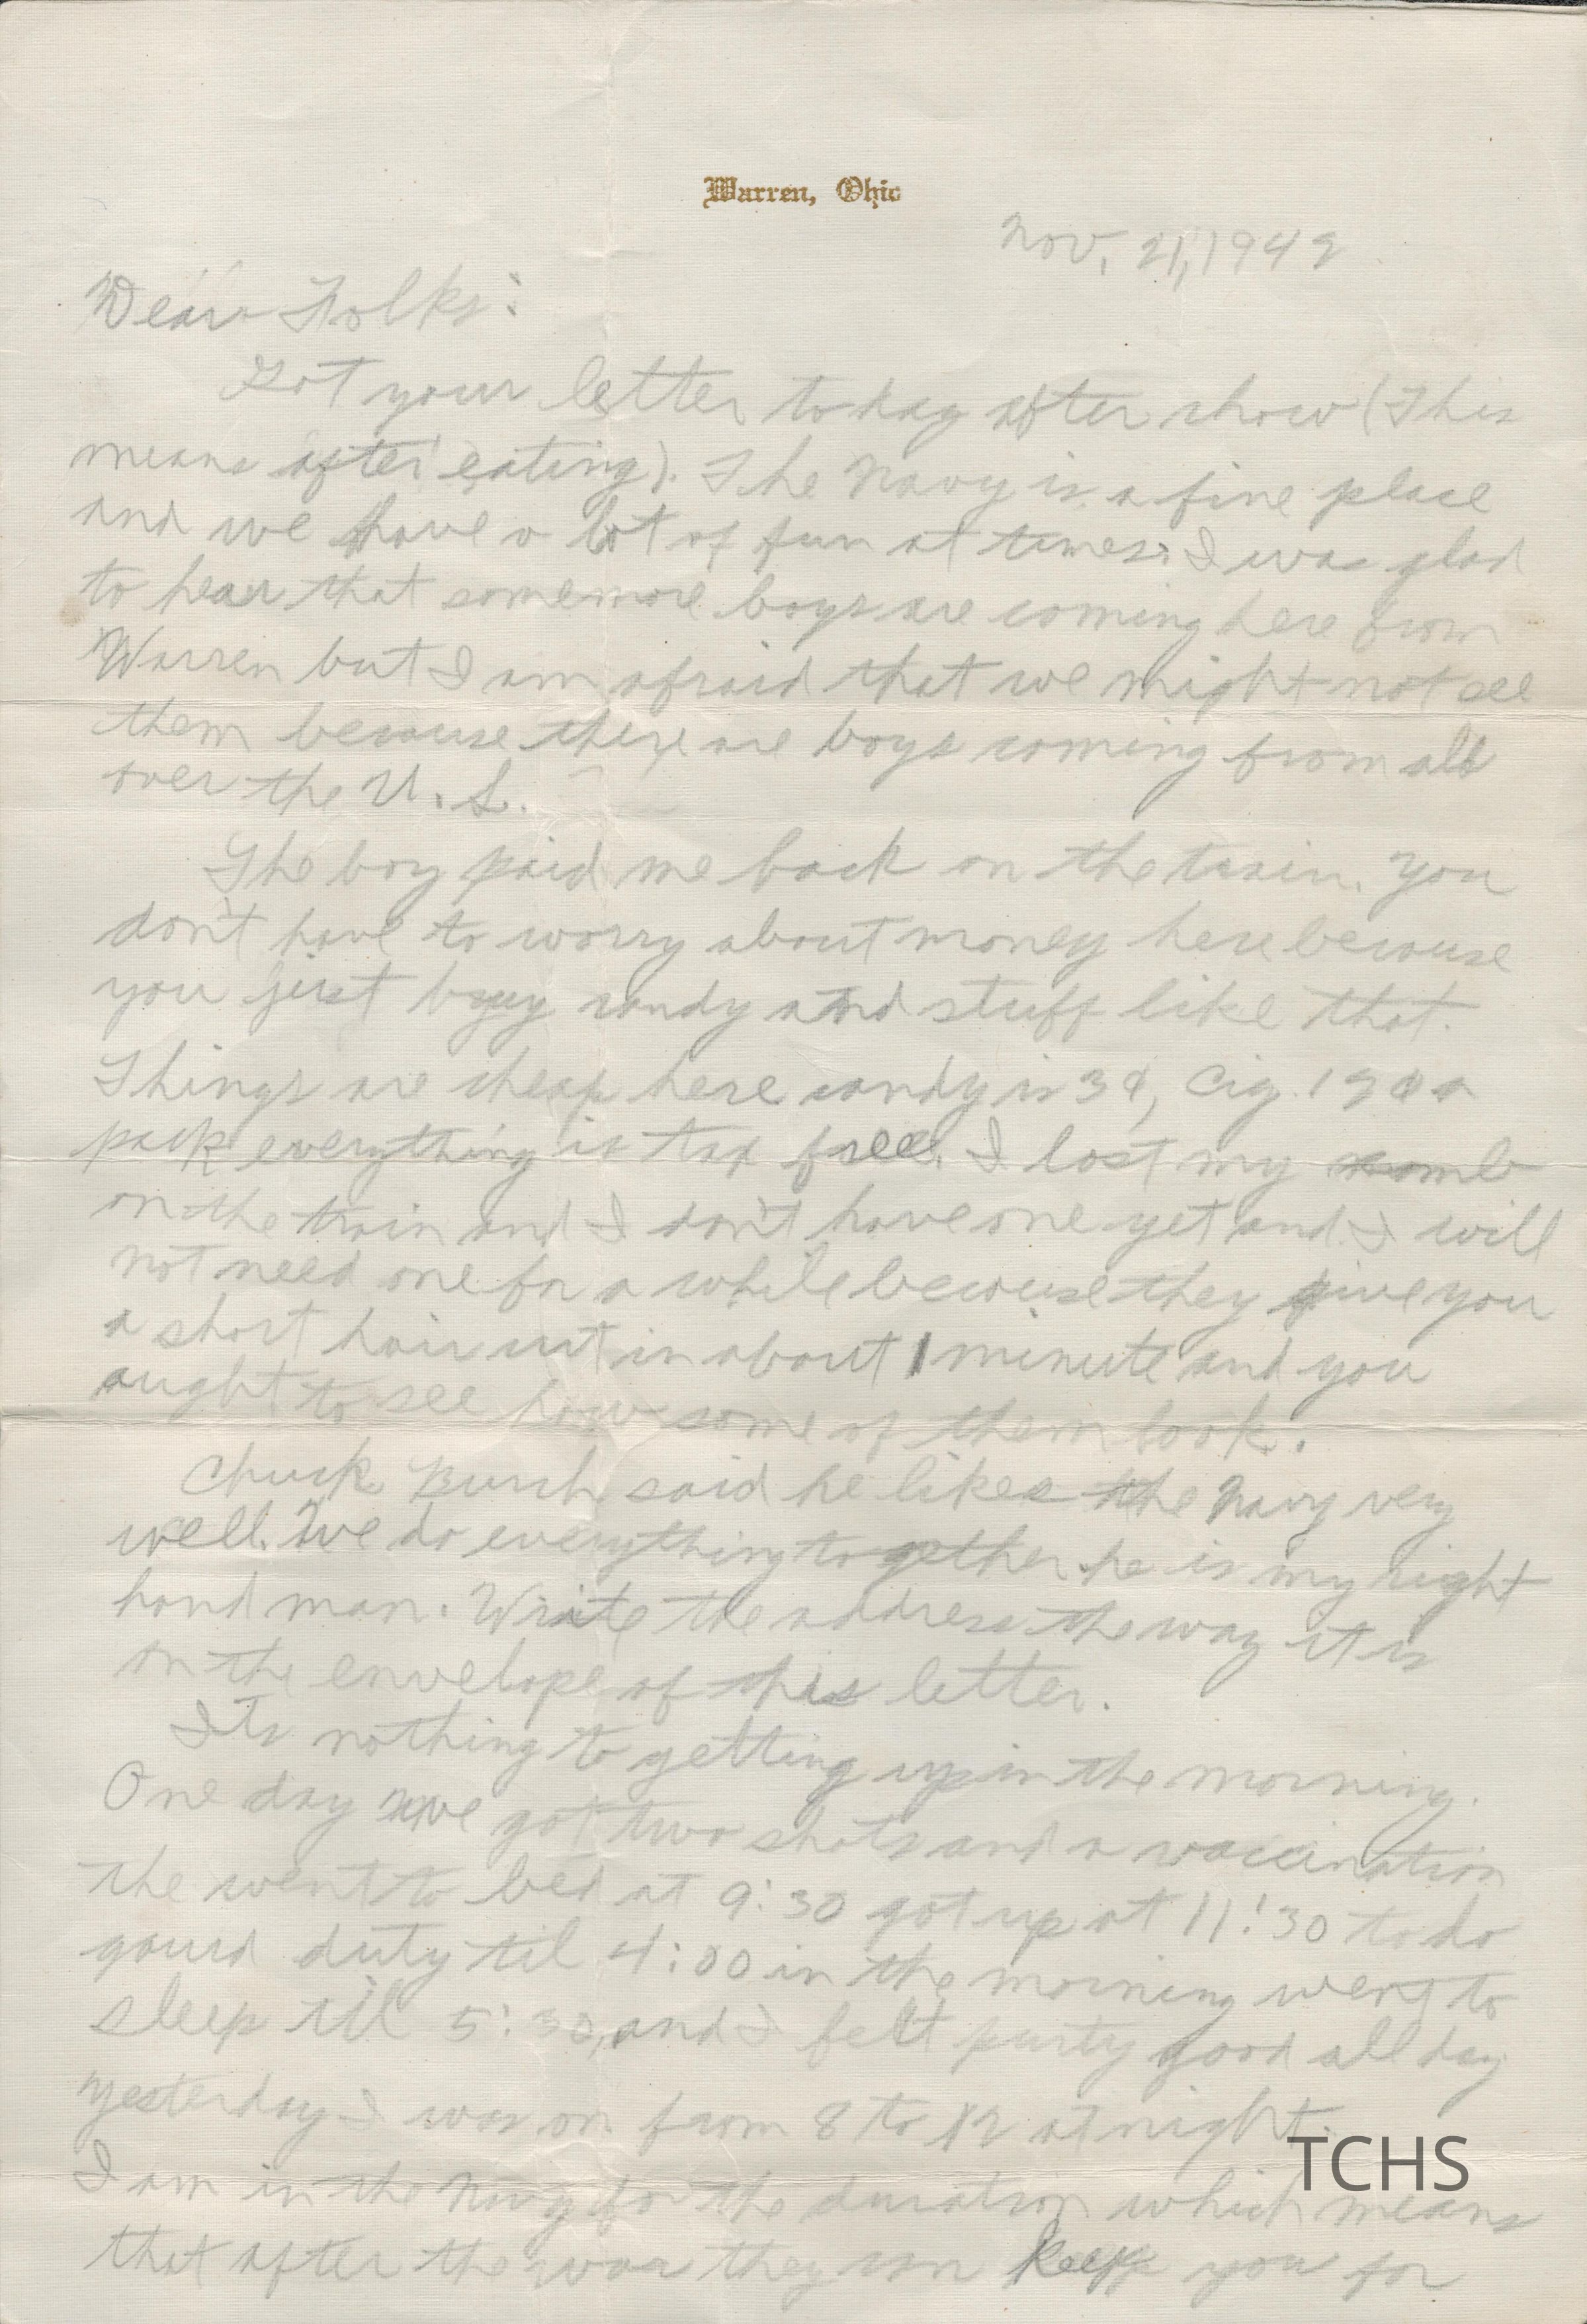 Warren, Ohio
Nov. 21, 1942
Dear Folks:
Got your letter today after chow (This
means after eating). The Navy is a fine place
and we have a lot of fun at times. I was glad
to hear that somemore boys are coming here from
Warren but I am afraid that we might not see
them because there are boys coming from all
over the U.S.
The boy paid me back on the train. You
don't have to worry about money here because
you just buy candy and stuff like that.
Things are cheap here candy is 3¢, Cig. 12¢ a
pack everything is tax free. I lost my comb
on the train and I don't have one yet and I will
not need one for a while because they give you
a short hair cut in about 1 minute and you
aught to see how some of them look.
Chuck Burch said he likes the Navy very
well. We do everything together he is my right
hand man. Write the address the way it is
on the envelope of this letter.
Its nothing to getting up in the morning.
One day we got two shots and a vaccination
the went to bed at 9:30 got up at 11:30 to do
gaurd duty til 4:00 in the morning went to
sleep till 5:30, and I felt purty good all day
yesterday I was on from 8 to 12 at night.
TCHS
I am in the Navy for the duration which means
that after the war they can keep you for